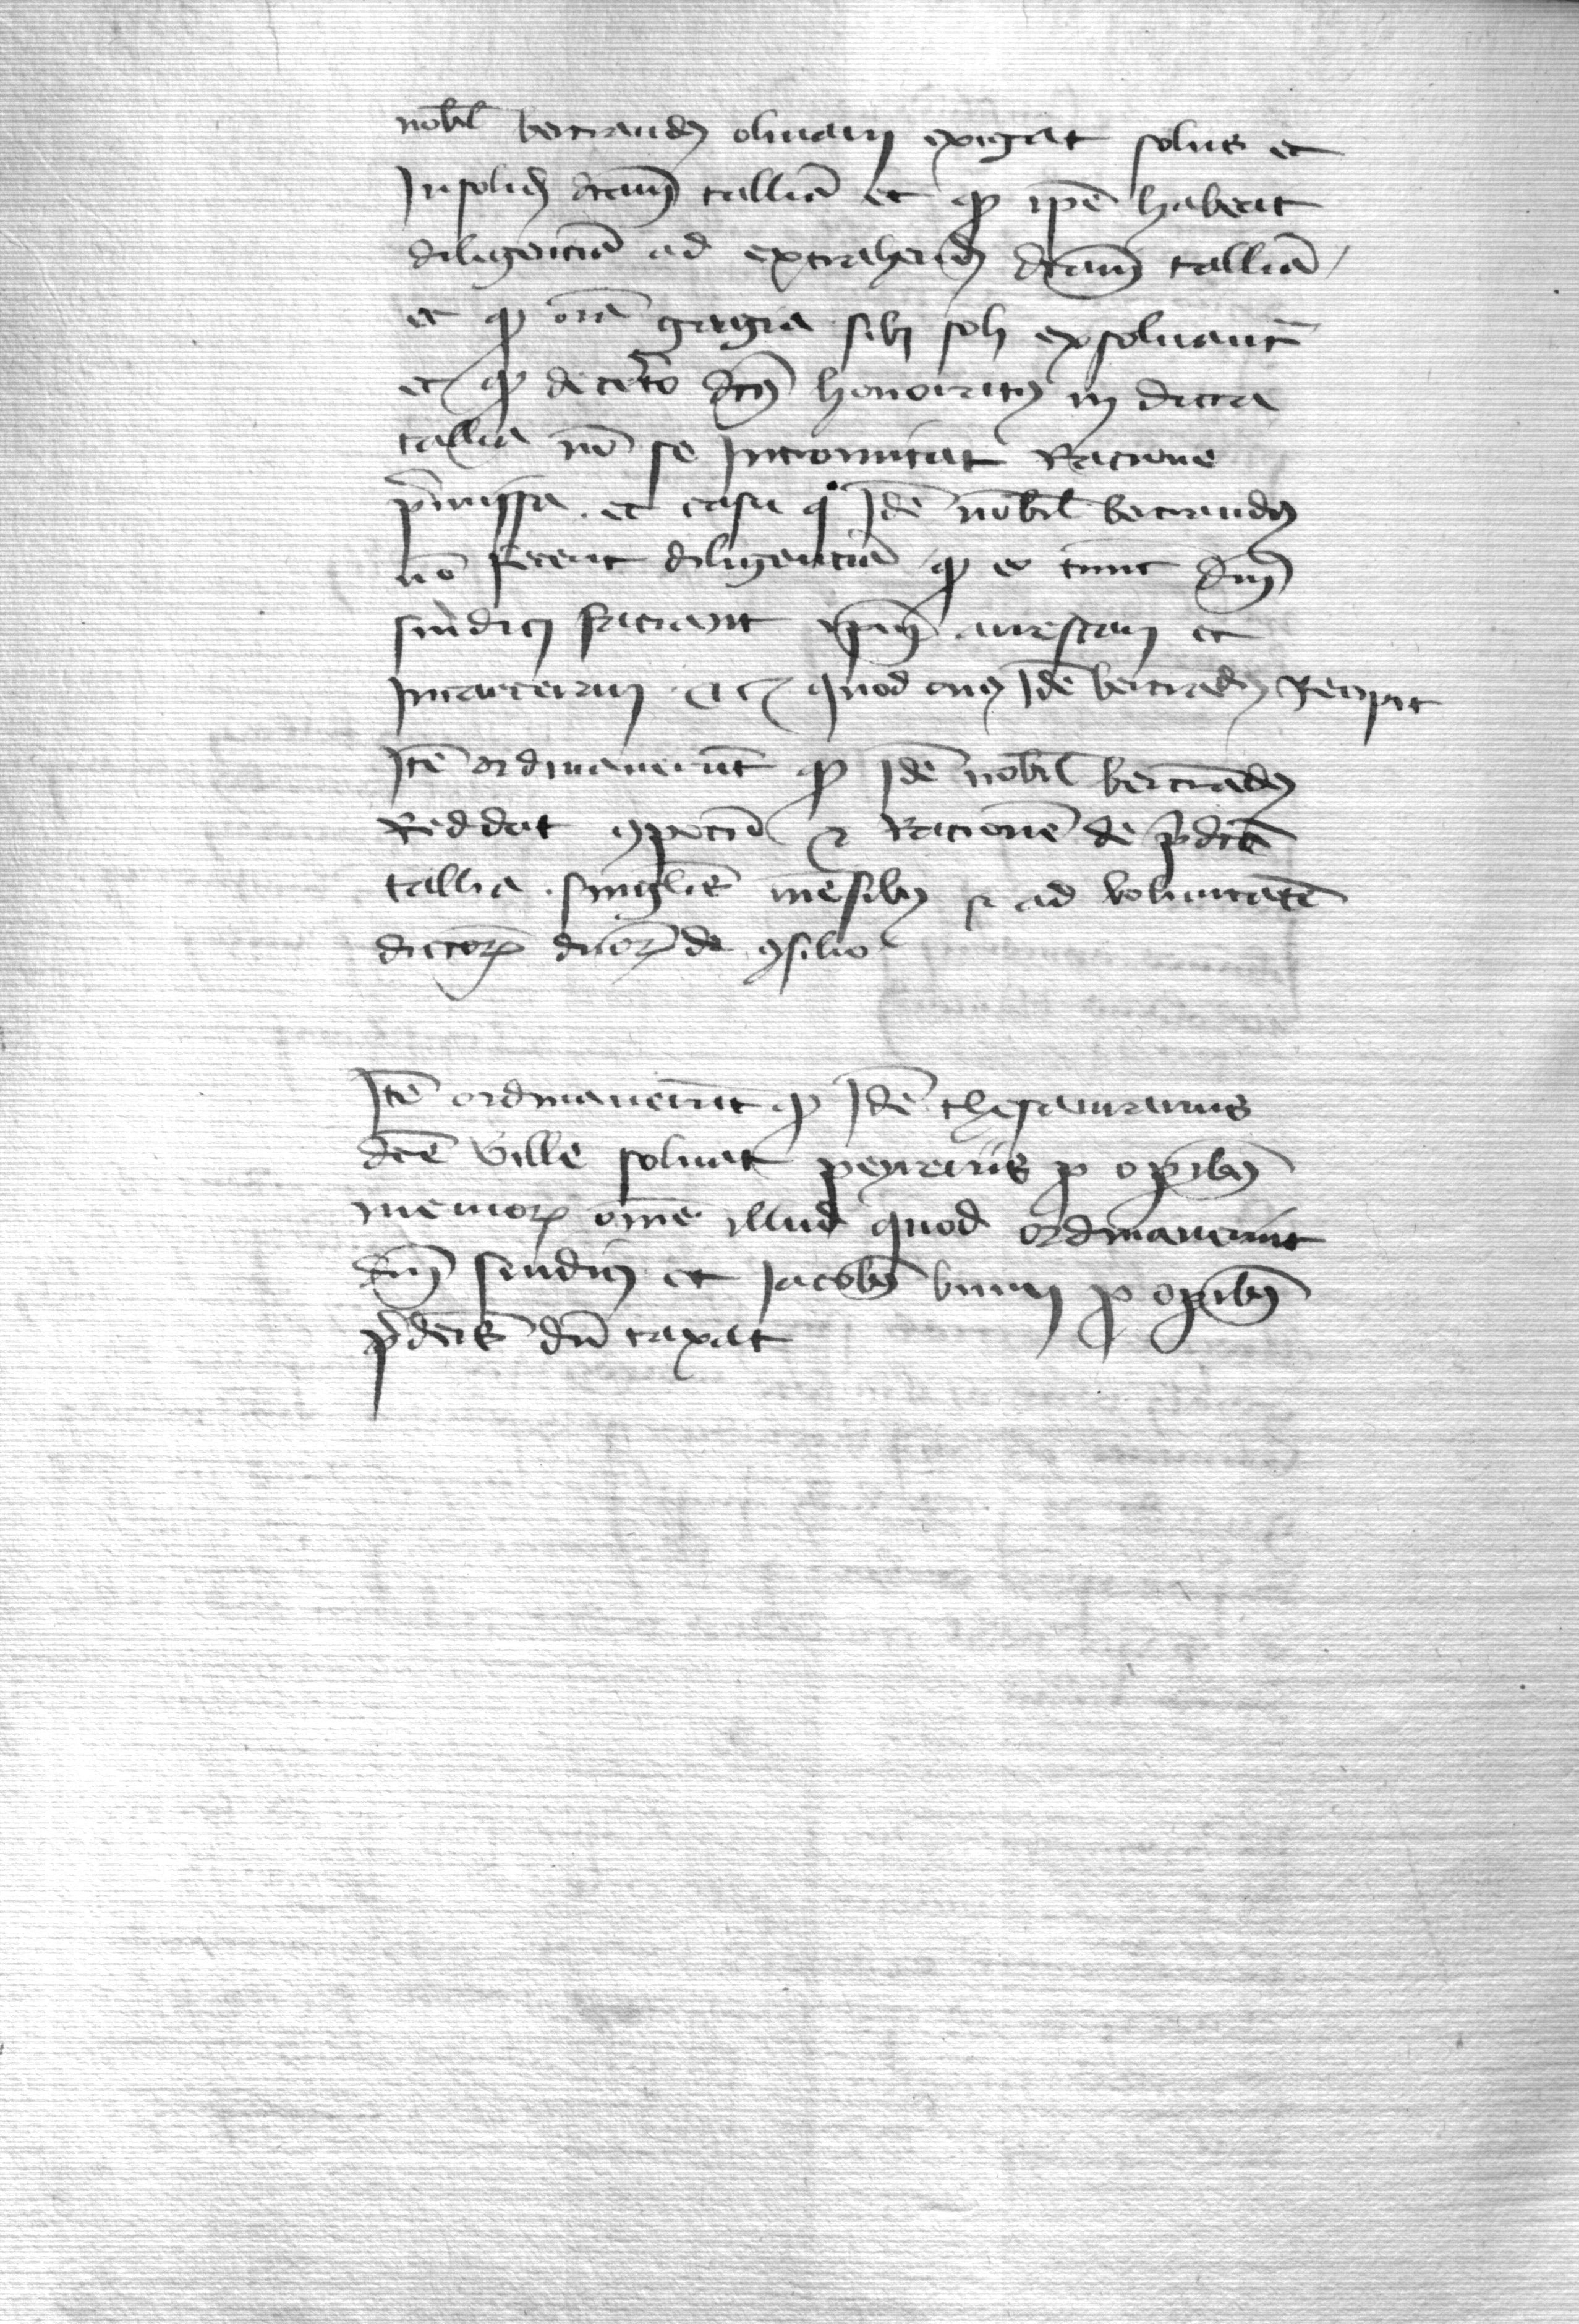 nobil bertrandus olivarii exigat solus et
Insolidum dictam talliam et quod ipse habeat
diligenciam ad extrahendum dictam talliam
et quod omnia gagia sibi soli exsolvantur
et quod decetero dictus honoratus in dicta
tallia non se Intromitat Racione
premissa . et casu quo Idem nobil bertrandus
non fecerit diligenciam quod ex tunc domini
sindici faciant ipsum arrestari et
Incarcerari . etc quod onus Idem bertrandus Recepit
Item ordinaverunt quod Idem nobil bertrandus
Reddat compotum et Racionem de predicta
tallia . singulis mensibus et ad voluntatem
dictorum dominorum de consilio
Item ordinaverunt quod Idem thesaurarius
dicte ville solvat peyreriis pro operibus
meniorum omne illud quod ordinaverint
domini sindici et Jacobus pro operibus
predictis dum taxat